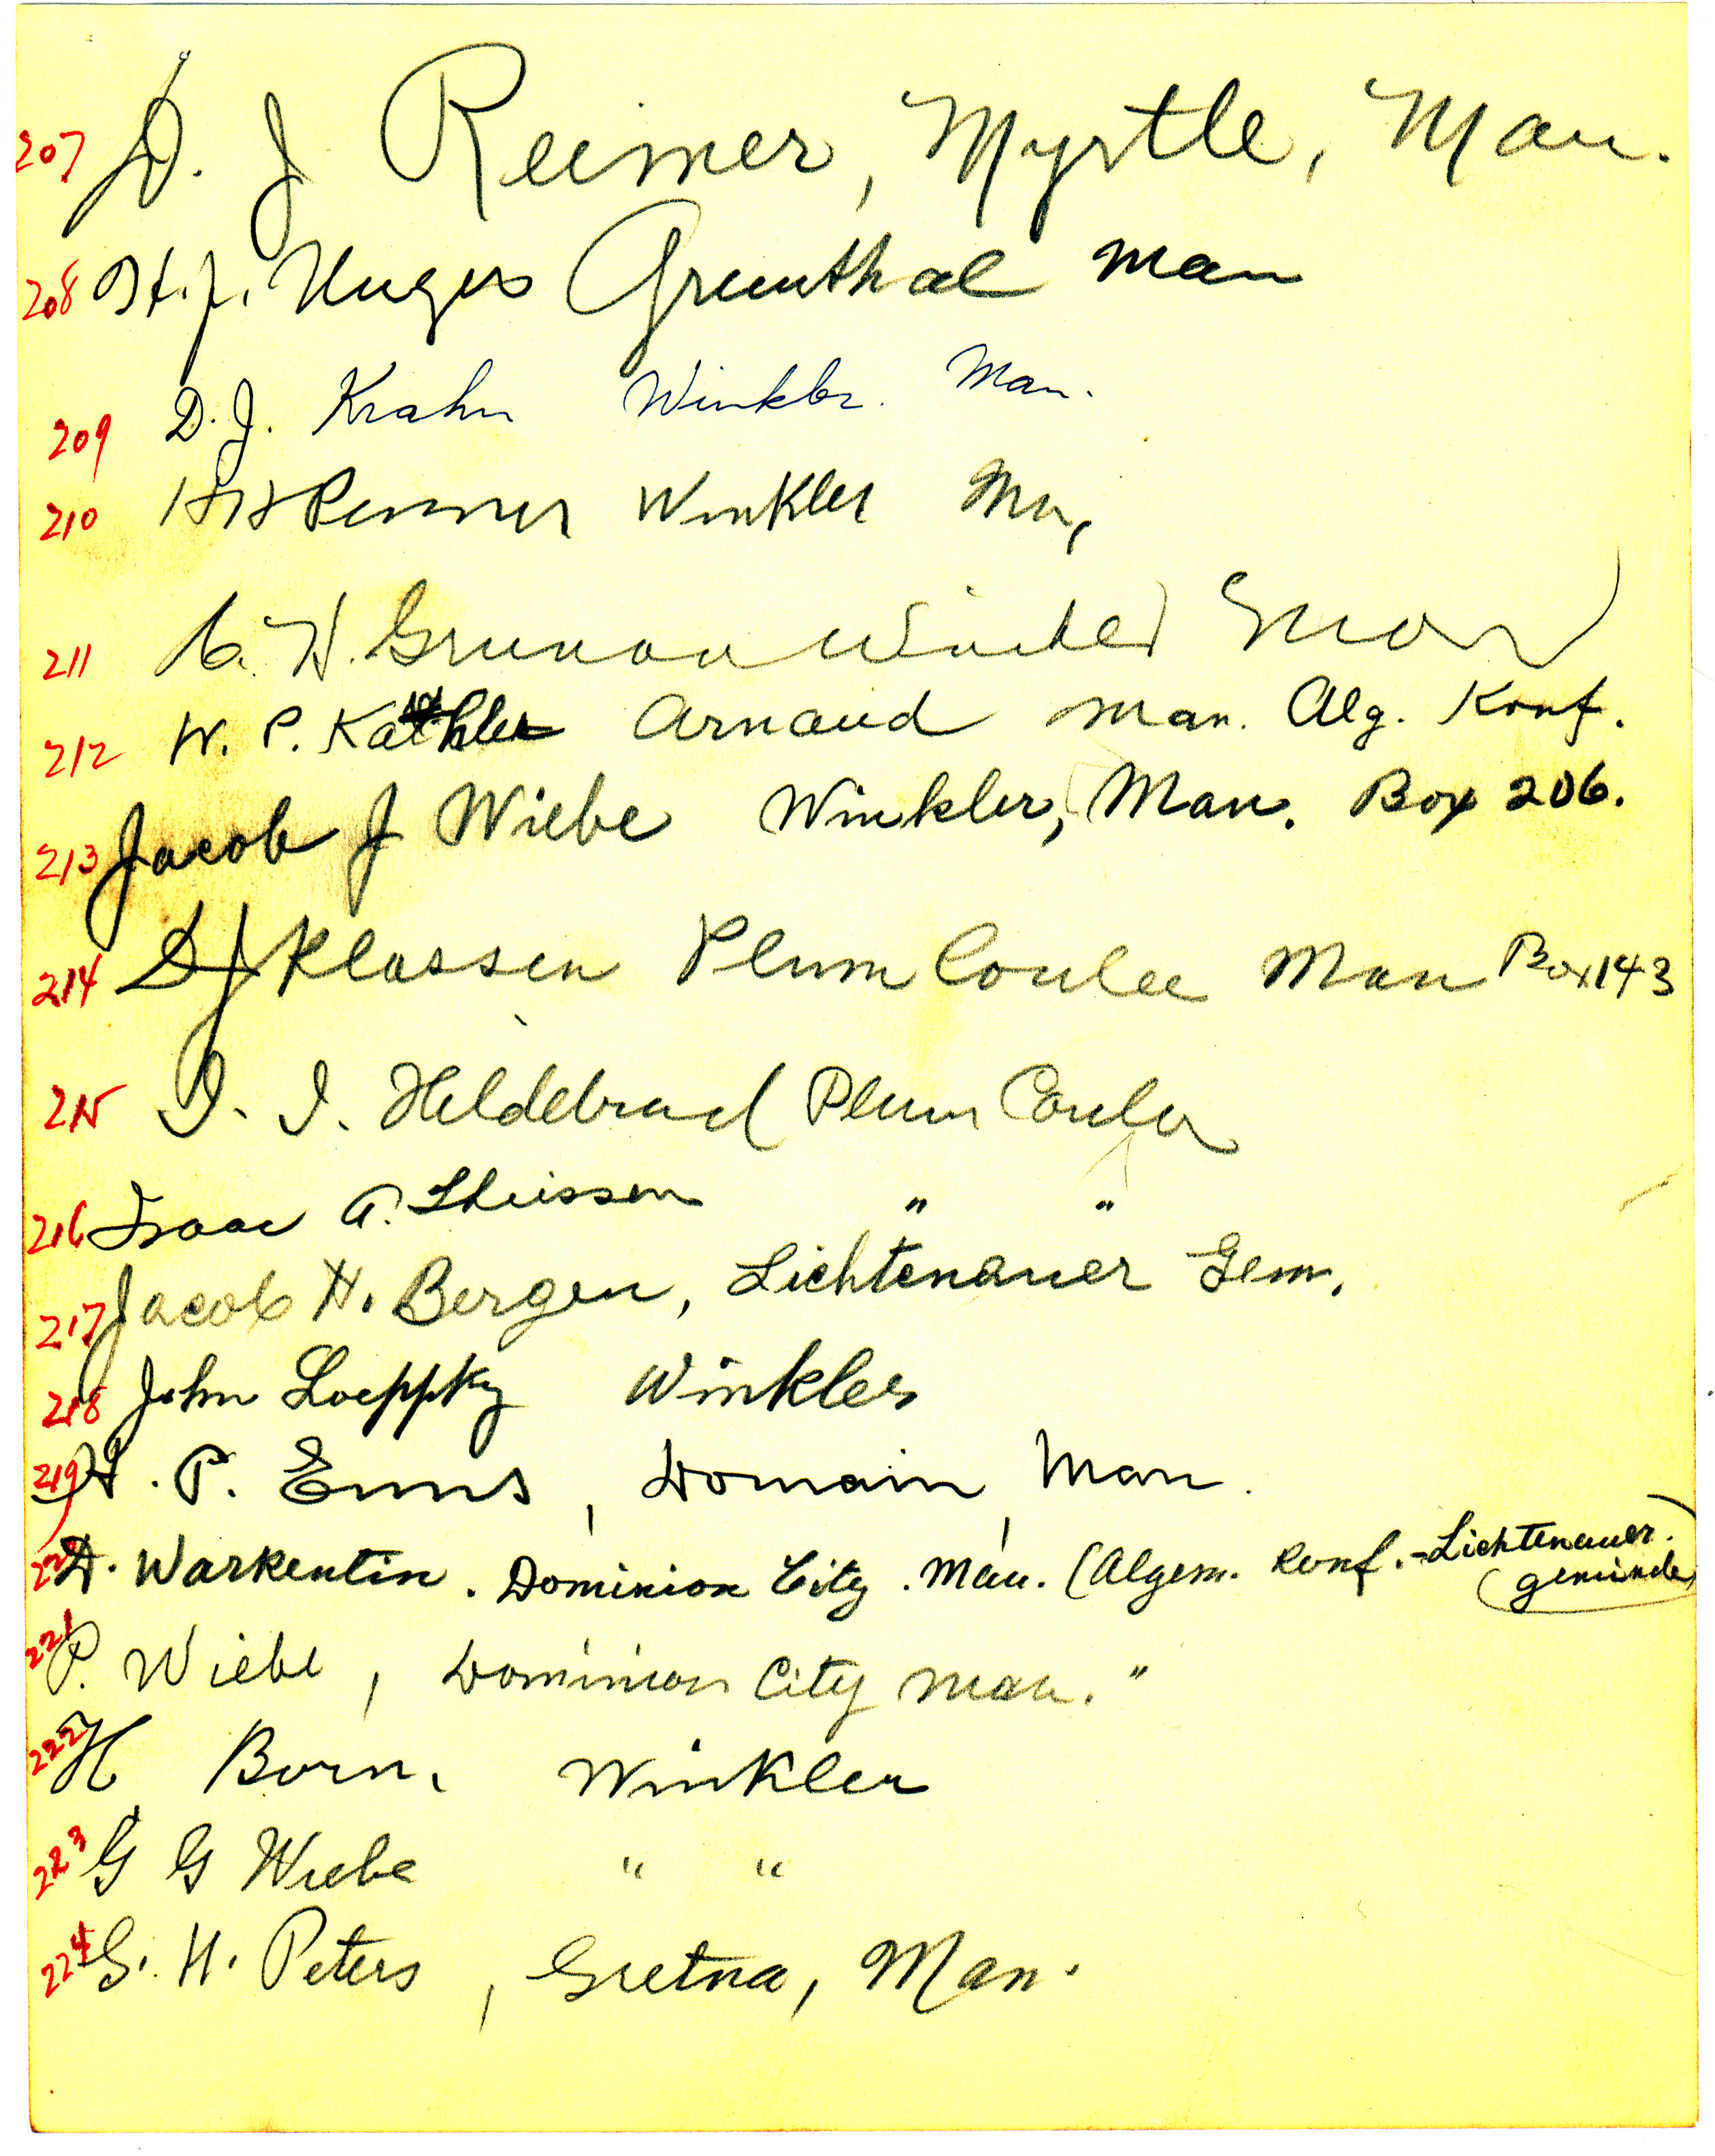 207 D. J Reimer, Myrtle, Man.
208 H. J. Unger Grunthal Man
209 D. J. Krahn Winkler. Man.
210 H H Penner Winkler Mn,
211 H. Winkler
212 W. P. Kathler Arnaud Man. Alg. Konf.
213 Jacob J Wiebe Winkler, Man. Box 206.
214 J Klassen Plum Coulee Man Box 143
215 I. Hildebrand Plum Coulee
216 Isaac A. Theissen " "
217 Jacob H. Bergen, Lichtenauer Gem.
218 John Loeppky Winkler
219 P. Enns, Domain, Man.
220 Warkentin. Dominion City. Man. (Algem. Konf. - Lichtenauer.)
(gemeinde)
221 P. Wiebe, Dominion City Man. "
222 H Born. Winkler
223 G G Wiebe " "
224 G. H. Peters, Gretna, Man.